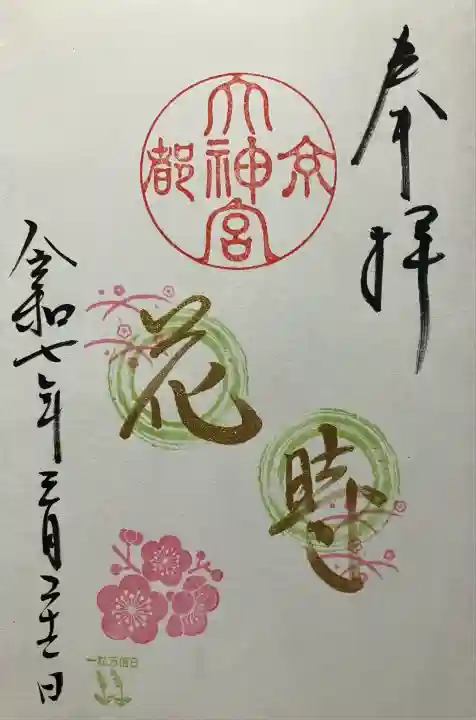 奉拝
京都
大神宮
花時
令和七年三月二十七日
一粒万倍日